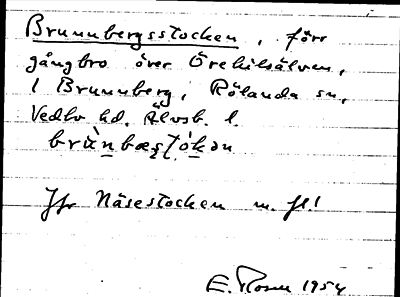 Brunnbergsstocken, förr
gångbro över Örekilsälven,
i Brunnberg, Rölanda sn,
Vedbo hd. Älvsb. l.
Jfr Näsestocken m. fl.!
E. Rosen 1954